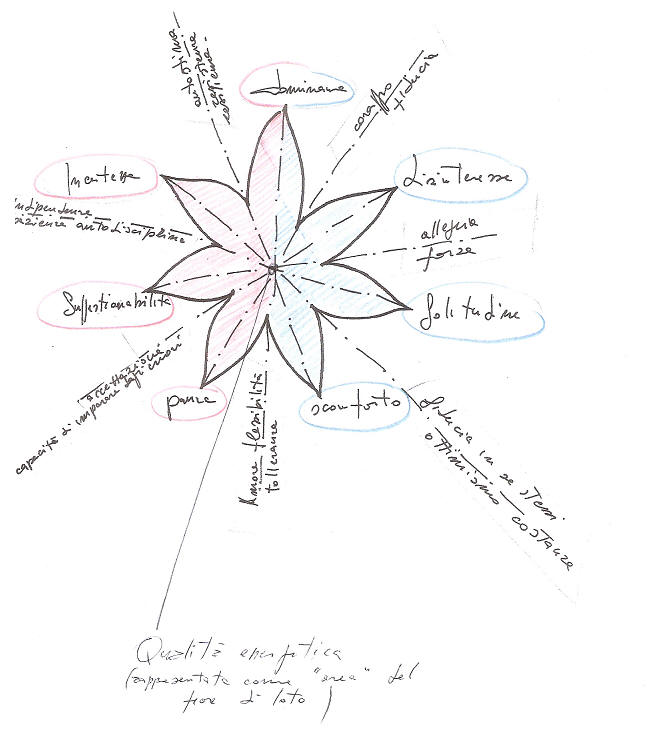 autostima
autosterna
coraggio
fiducia
dominanza
Incertezza
disinteresse
indipendenza
autodisciplina
allegria
forza
Suggestionabilità
Solitudine
accettazione
capacità di imparare dagli errori
paura
sconforto
Amore flessibilità
tolleranza
fiducia in se stessi
ottimismo costanza
Qualità energetica
(rappresentata come "area" del
fiore di loto)